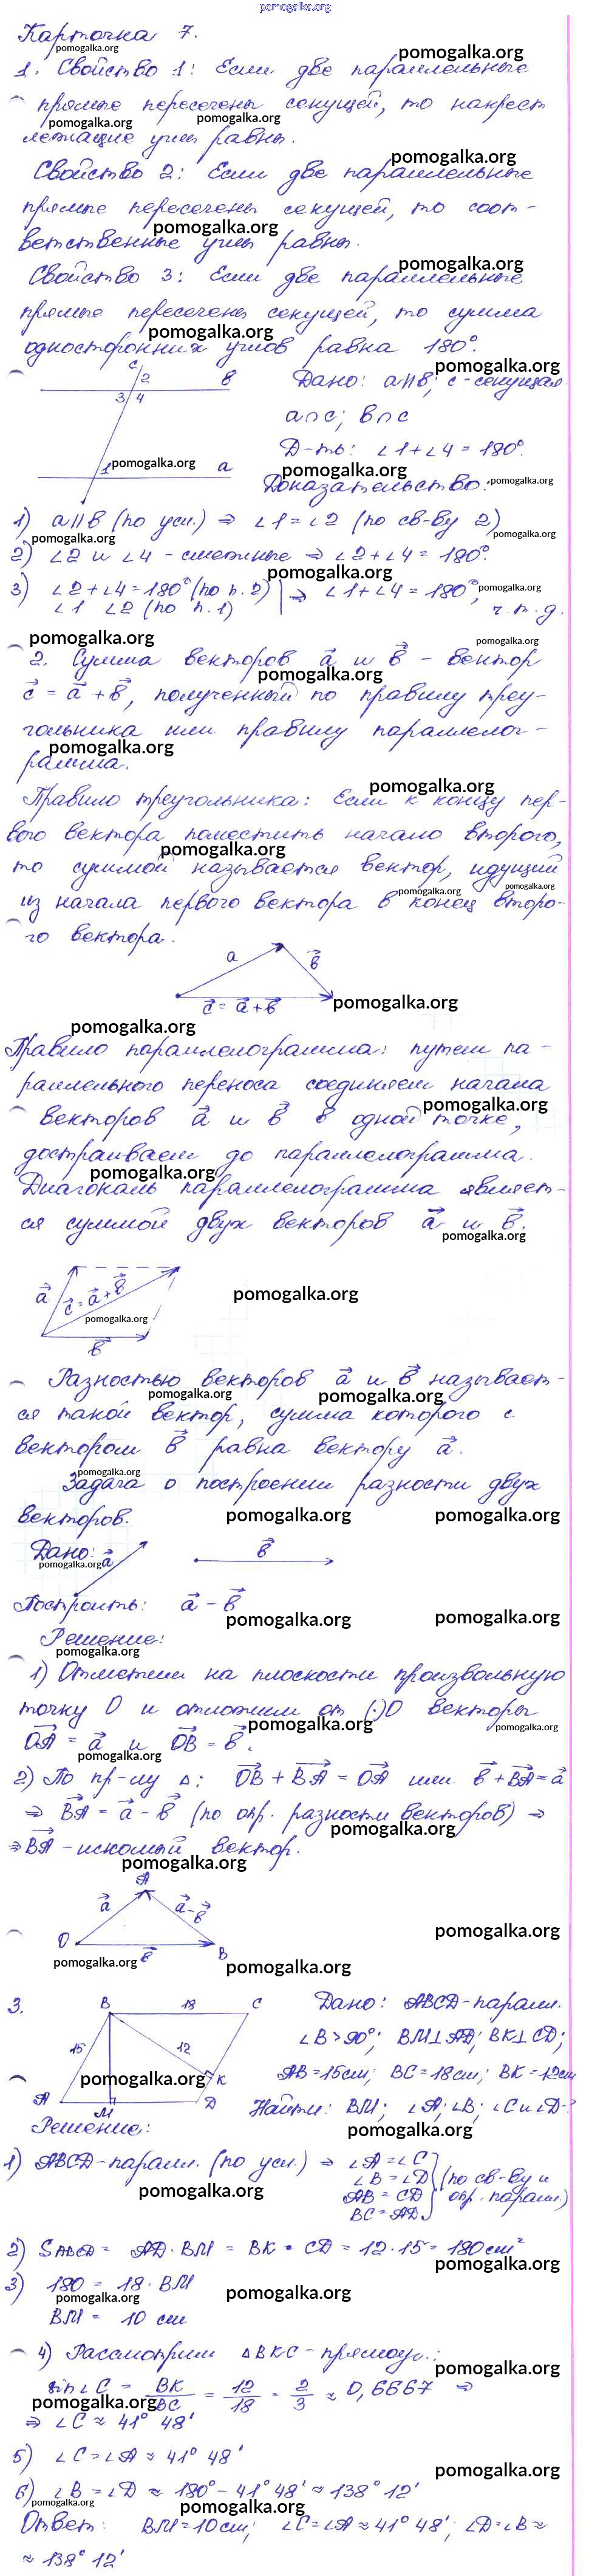 pomogalka.org
Карточка 7.
1. Свойство 1: Если две параллельные
прямые пересечены секущей, то накрест
лежащие углы равны.
Свойство 2: Если две параллельные
прямые пересечены секущей, то соот-
ветственные углы равны.
Свойство 3: Если две параллельные
прямые пересечены секущей, то сумма
односторонних углов равна 180°.
c
2
в
3 4
1
a
Дано: a∥в; c-секущая
a∩c; в∩c
Д-ть: ∠1+∠4=180°.
Доказательство:
1) a∥в (по усл.) ⇒ ∠1=∠2 (по св-ву 2)
2) ∠2 и ∠4 - смежные ⇒ ∠2+∠4=180°.
3) ∠2+∠4=180° (по п.2) ⇒ ∠1+∠4=180°,
∠1 ∠2 (по п.1)
ч.т.д.
2. Сумма векторов a⃗ и в⃗ - вектор
c⃗ = a⃗ + в⃗, полученный по правилу треу-
гольника или правилу параллелог-
рамма.
Правило треугольника: Если к концу пер-
вого вектора поместить начало второго,
то суммой называется вектор, идущий
из начала первого вектора в конец второ-
го вектора.
a
в⃗
c⃗ = a⃗ + в⃗
Правило параллелограмма: путем па-
раллельного переноса соединяем начала
векторов a⃗ и в⃗ в одной точке,
достраиваем до параллелограмма.
Диагональ параллелограмма являет-
ся суммой двух векторов a⃗ и в⃗.
a⃗
c⃗ = a⃗ + в⃗
в⃗
Разностью векторов a⃗ и в⃗ называет-
ся такой вектор, сумма которого с
вектором в⃗ равна вектору a⃗.
Задача о построении разности двух
векторов.
Дано: a⃗
в⃗
Построить: a⃗ - в⃗
Решение:
1) Отметим на плоскости произвольную
точку O и отложим от (·)O векторы
OA⃗ = a⃗ и OB⃗ = в⃗.
2) По пр-лу Δ: OB⃗ + BA⃗ = OA⃗ или в⃗ + BA⃗ = a⃗
⇒ BA⃗ = a⃗ - в⃗ (по опр. разности векторов) ⇒
⇒ BA⃗ - искомый вектор.
A
a⃗
a⃗-в⃗
O
в⃗
B
3.
B 18 C
15 12
K
A M D
Дано: ABCD-паралл.
∠B>90°; BM⊥AD; BK⊥CD;
AB=15см; BC=18см; BK=12см
Найти: BM; ∠A; ∠B; ∠C и ∠D-?
Решение:
1) ABCD-паралл. (по усл.) ⇒ ∠A=∠C
∠B=∠D (по св-ву и
AB=CD опр. паралл.)
BC=AD
2) SABCD = AD·BM = BK·CD = 12·15 = 180 см²
3) 180 = 18·BM
BM = 10 см
4) Рассмотрим ΔBKC-прямоуг.:
sin∠C = BK/BC = 12/18 = 2/3 ≈ 0,6667 ⇒
⇒ ∠C ≈ 41° 48'
5) ∠C=∠A ≈ 41° 48'
6) ∠B=∠D ≈ 180°-41°48' ≈ 138° 12'
Ответ: BM=10см; ∠C=∠A≈41° 48'; ∠D=∠B≈
≈ 138° 12'